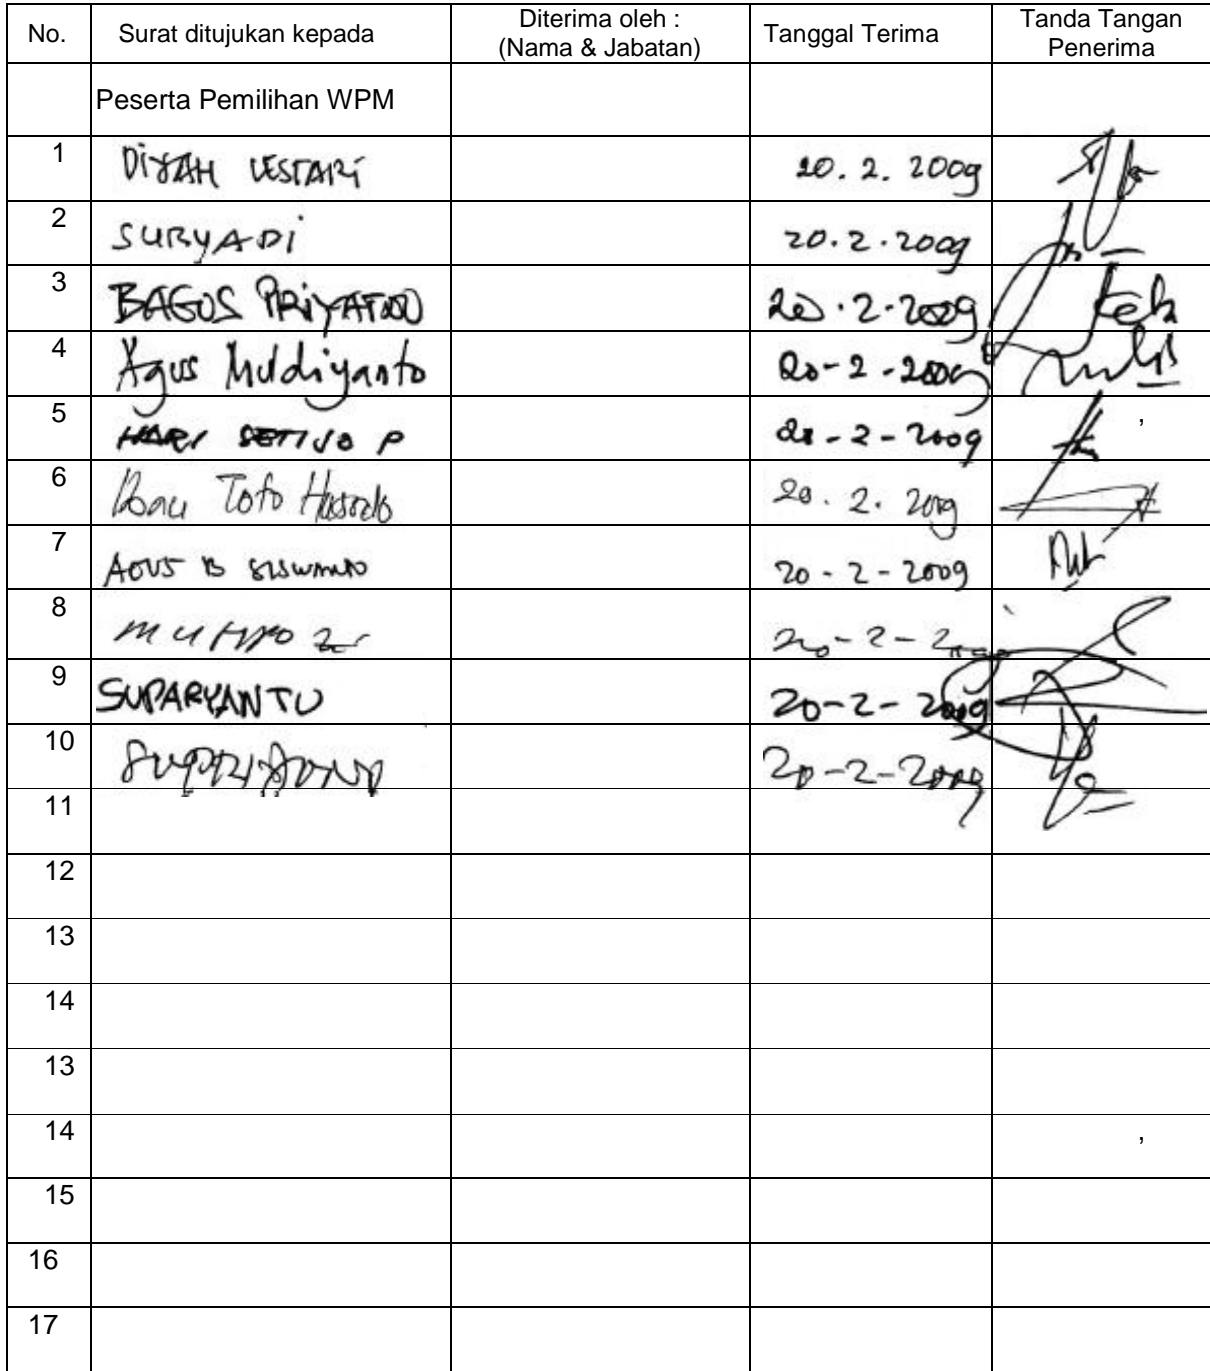 No. Surat ditujukan kepada Diterima oleh : Tanggal Terima Tanda Tangan
(Nama & Jabatan) Penerima
Peserta Pemilihan WPM
1 DiYAH LESTARi 20. 2. 2009
2 SURYADi 20.2.2009
3 BAGUS PRiYATNO 20.2.2009
4 Agus Muldiyanto 20-2-2009
5 HARI SETIYO P 20-2-2009
6 Toto 20. 2. 2009
7 AGUS B SISWANTO 20-2-2009
8 20-2-2009
9 SUPARYANTO 20-2-2009
10 20-2-2009
11
12
13
14
13
14 ,
15
16
17